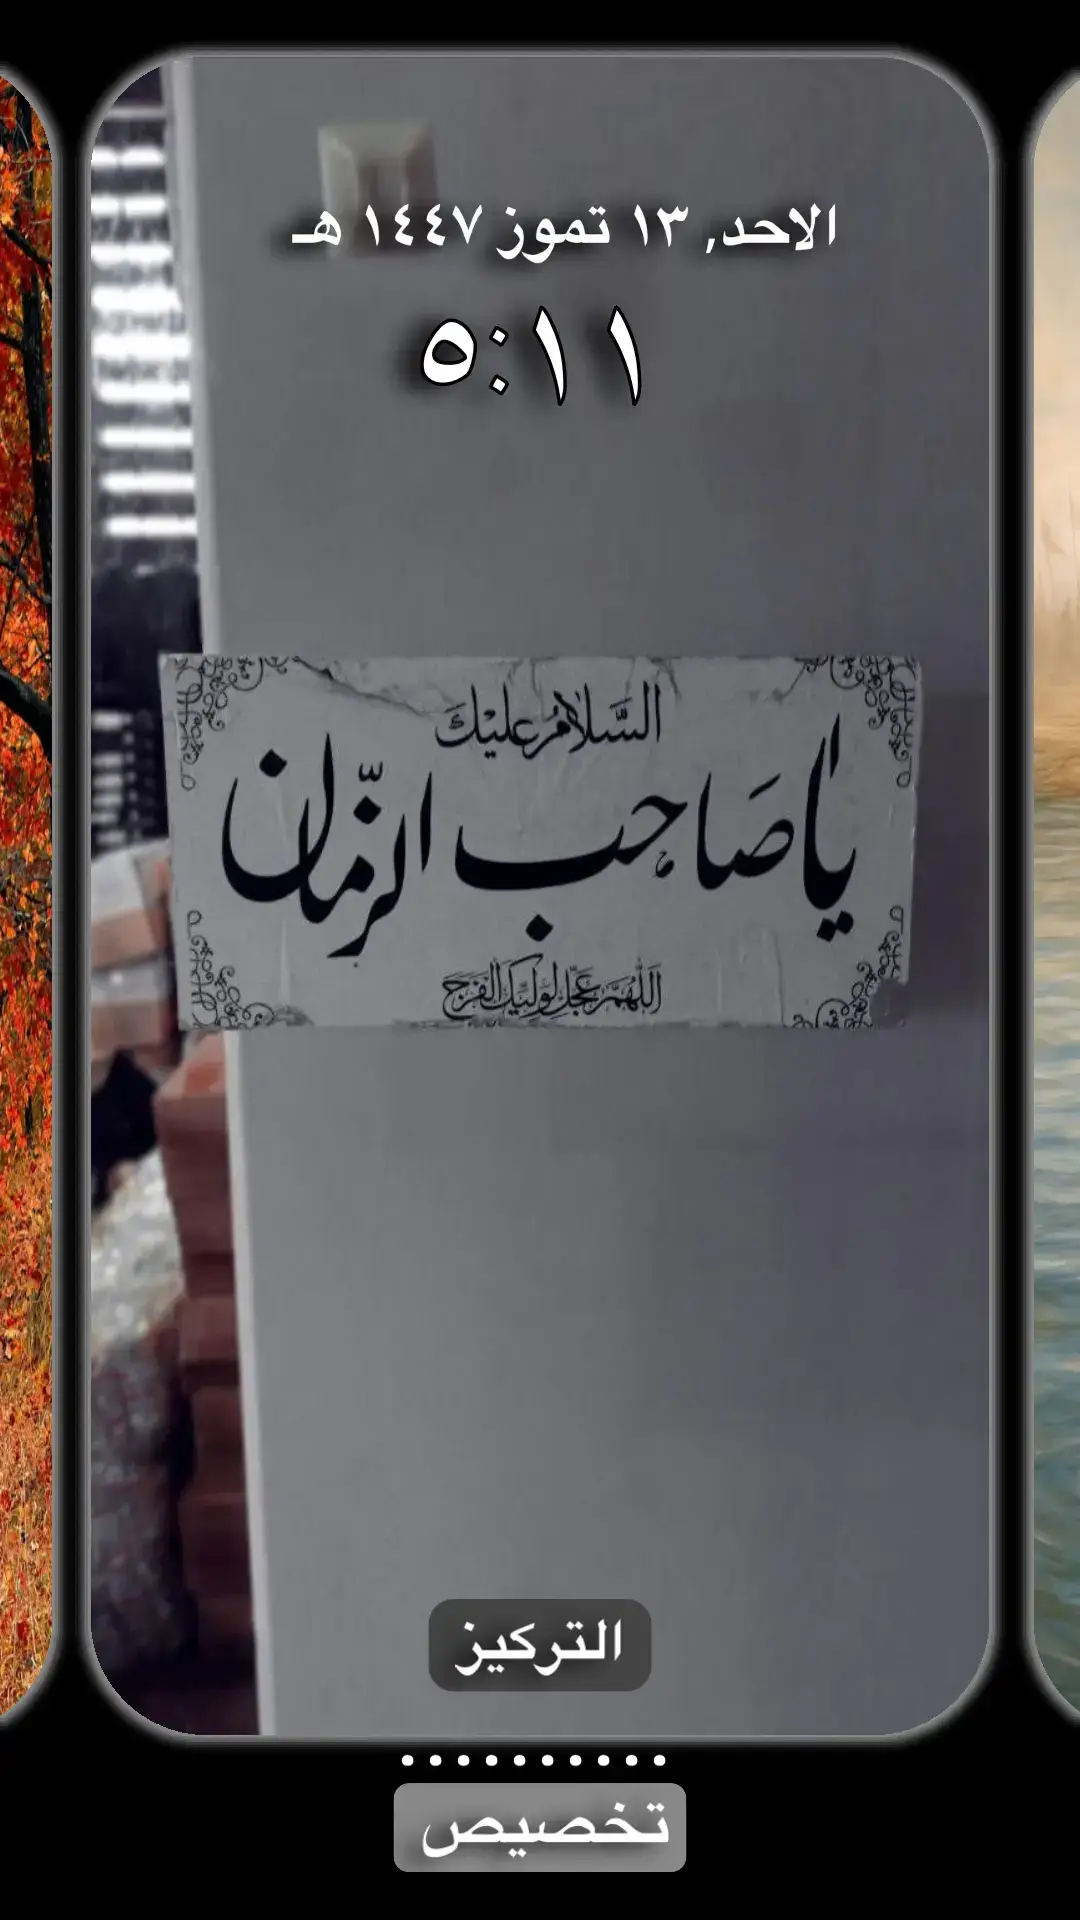 الاحد, ١٣ تموز ١٤٤٧ هـ
٥:١١
السَّلامُ عليْكَ
ياصَاحب الزّمان
اَللّهُمَّ عَجِّل لِوَلیِّكَ الفَرَج
التركيز
تخصيص